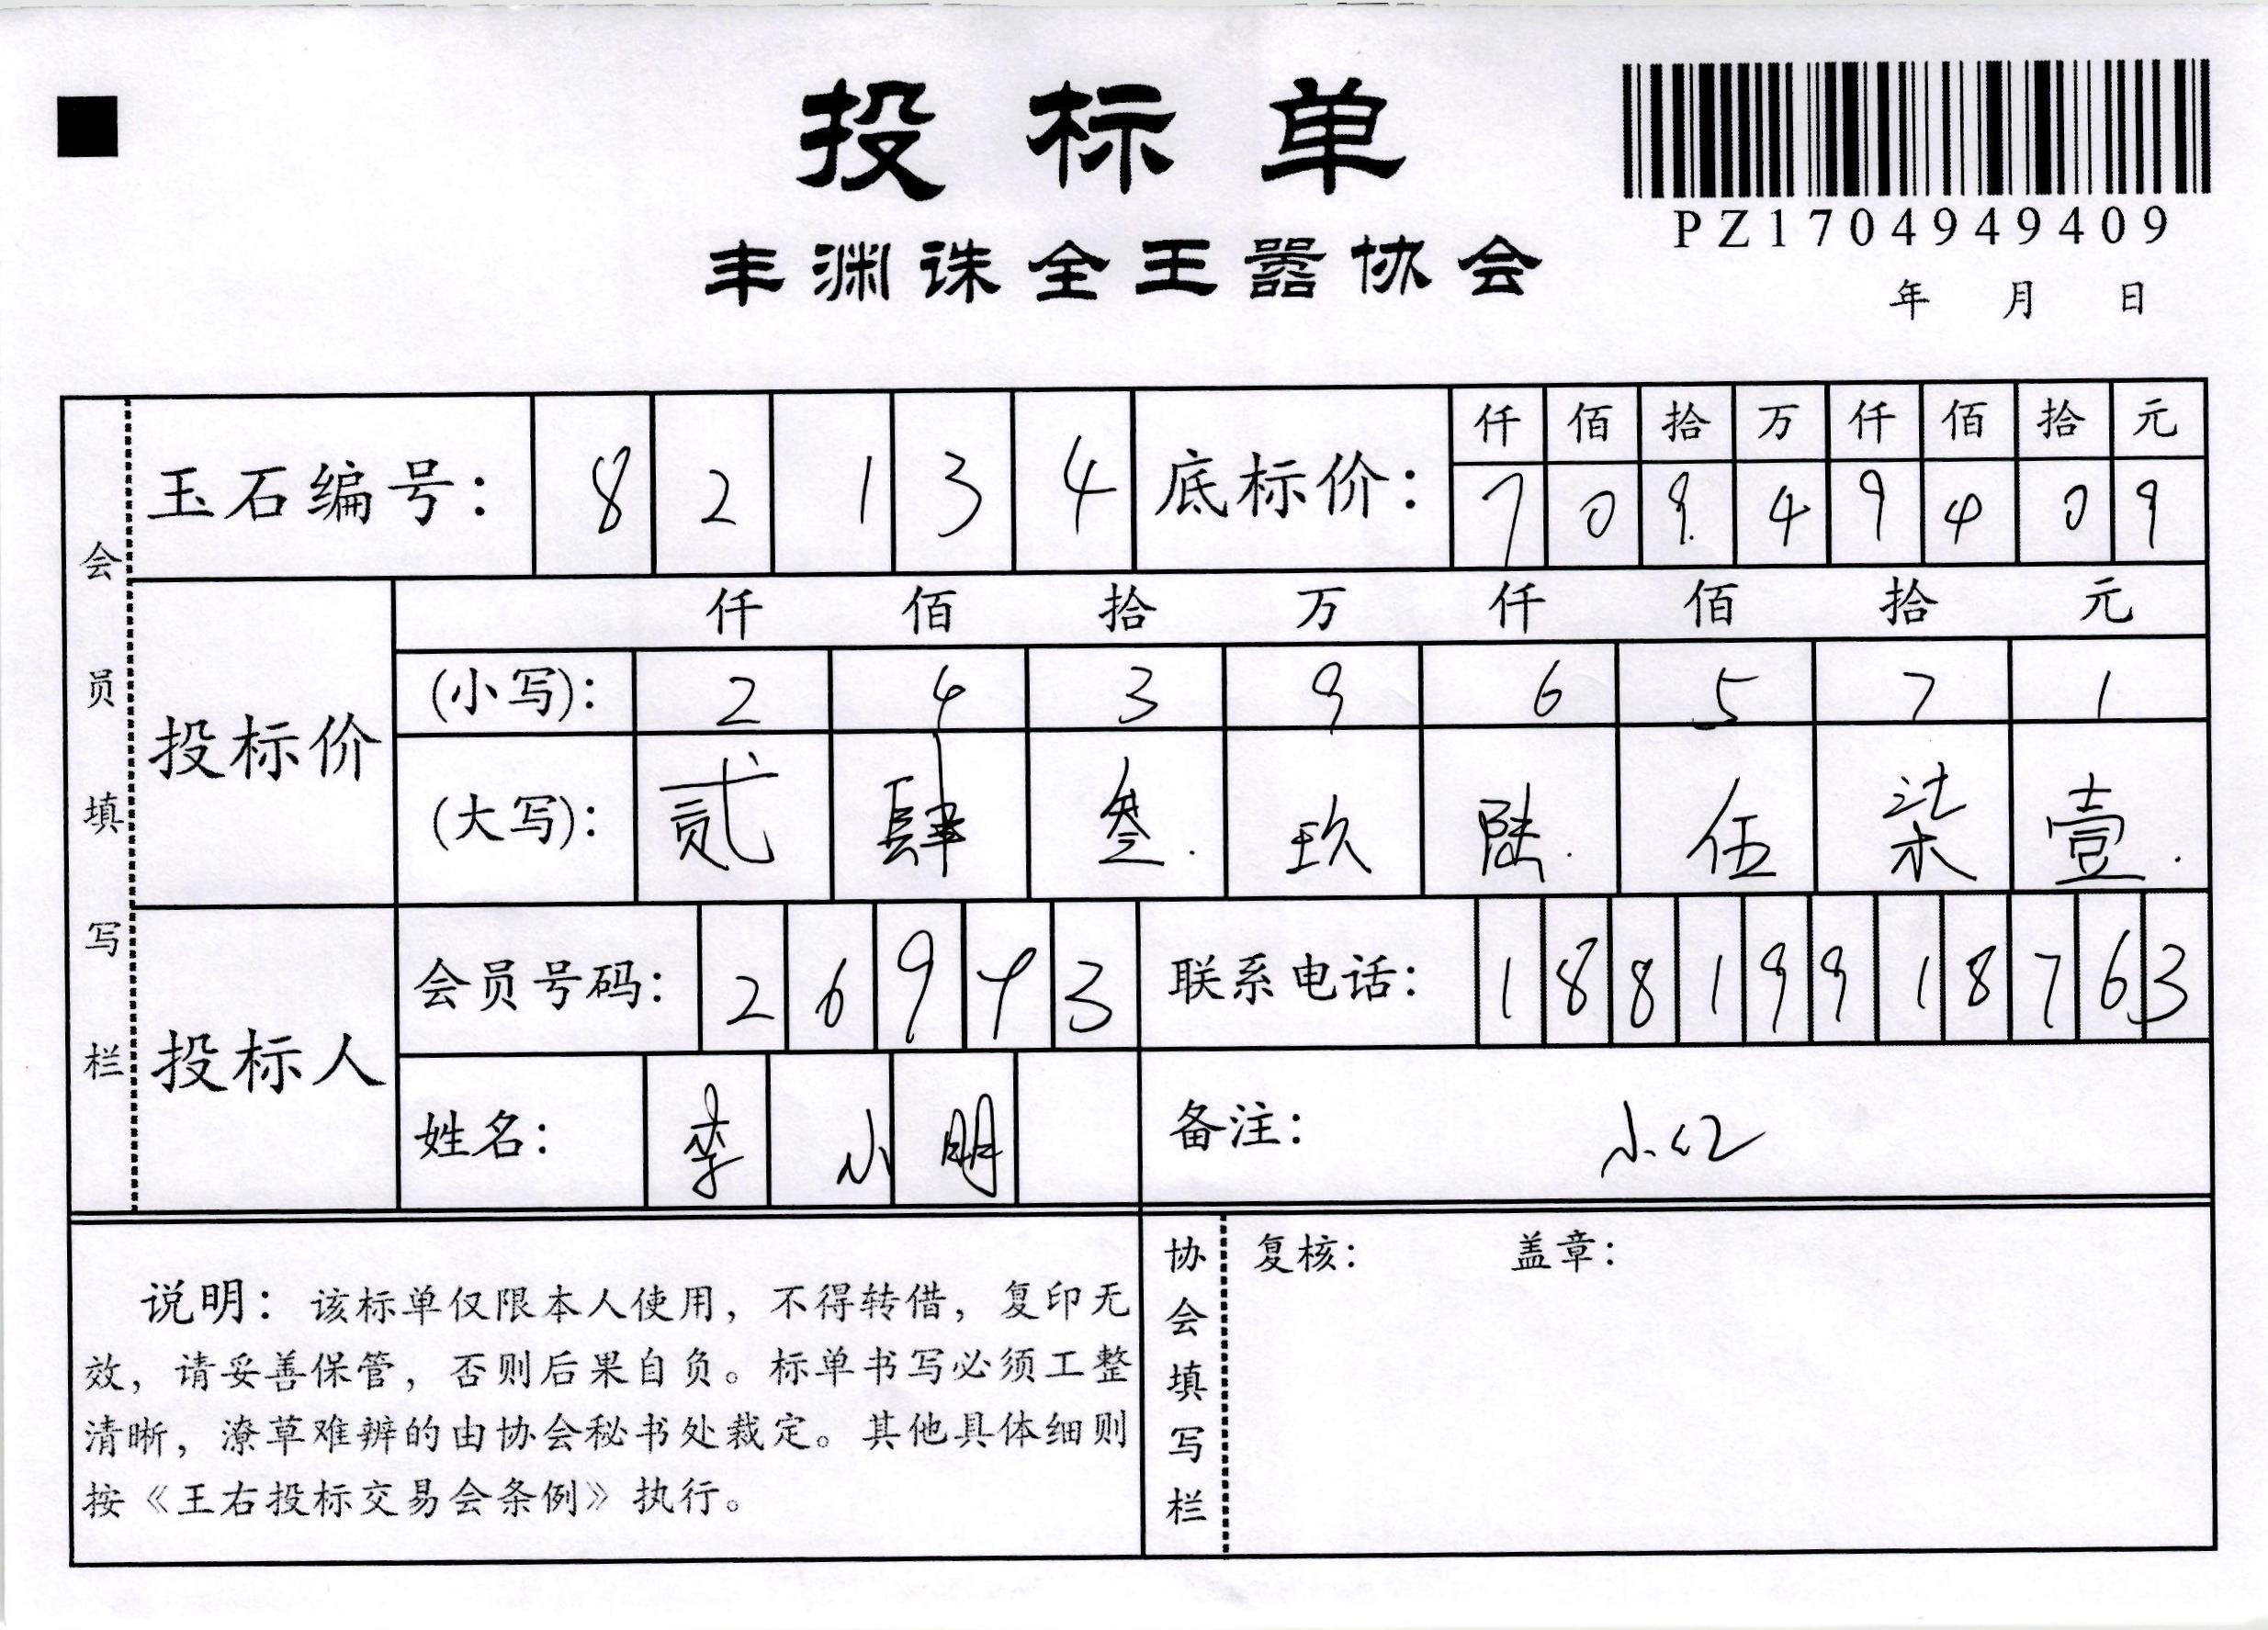 投标单
丰渊诛全王嚣协会
PZ1704949409
年 月 日
会员填写栏
玉石编号: 8 2 1 3 4 底标价: 仟 佰 拾 万 仟 佰 拾 元
7 0 9 4 9 4 0 9
投标价
仟 佰 拾 万 仟 佰 拾 元
(小写): 2 4 3 9 6 5 7 1
(大写): 贰 肆 叁 玖 陆 伍 柒 壹
投标人
会员号码: 2 6 9 4 3 联系电话: 1 8 8 1 9 9 1 8 7 6 3
姓名: 李 小 明 备注: 小红
说明: 该标单仅限本人使用, 不得转借, 复印无
效, 请妥善保管, 否则后果自负。标单书写必须工整
清晰, 潦草难辨的由协会秘书处裁定。其他具体细则
按《王右投标交易会条例》执行。
协会填写栏
复核: 盖章: